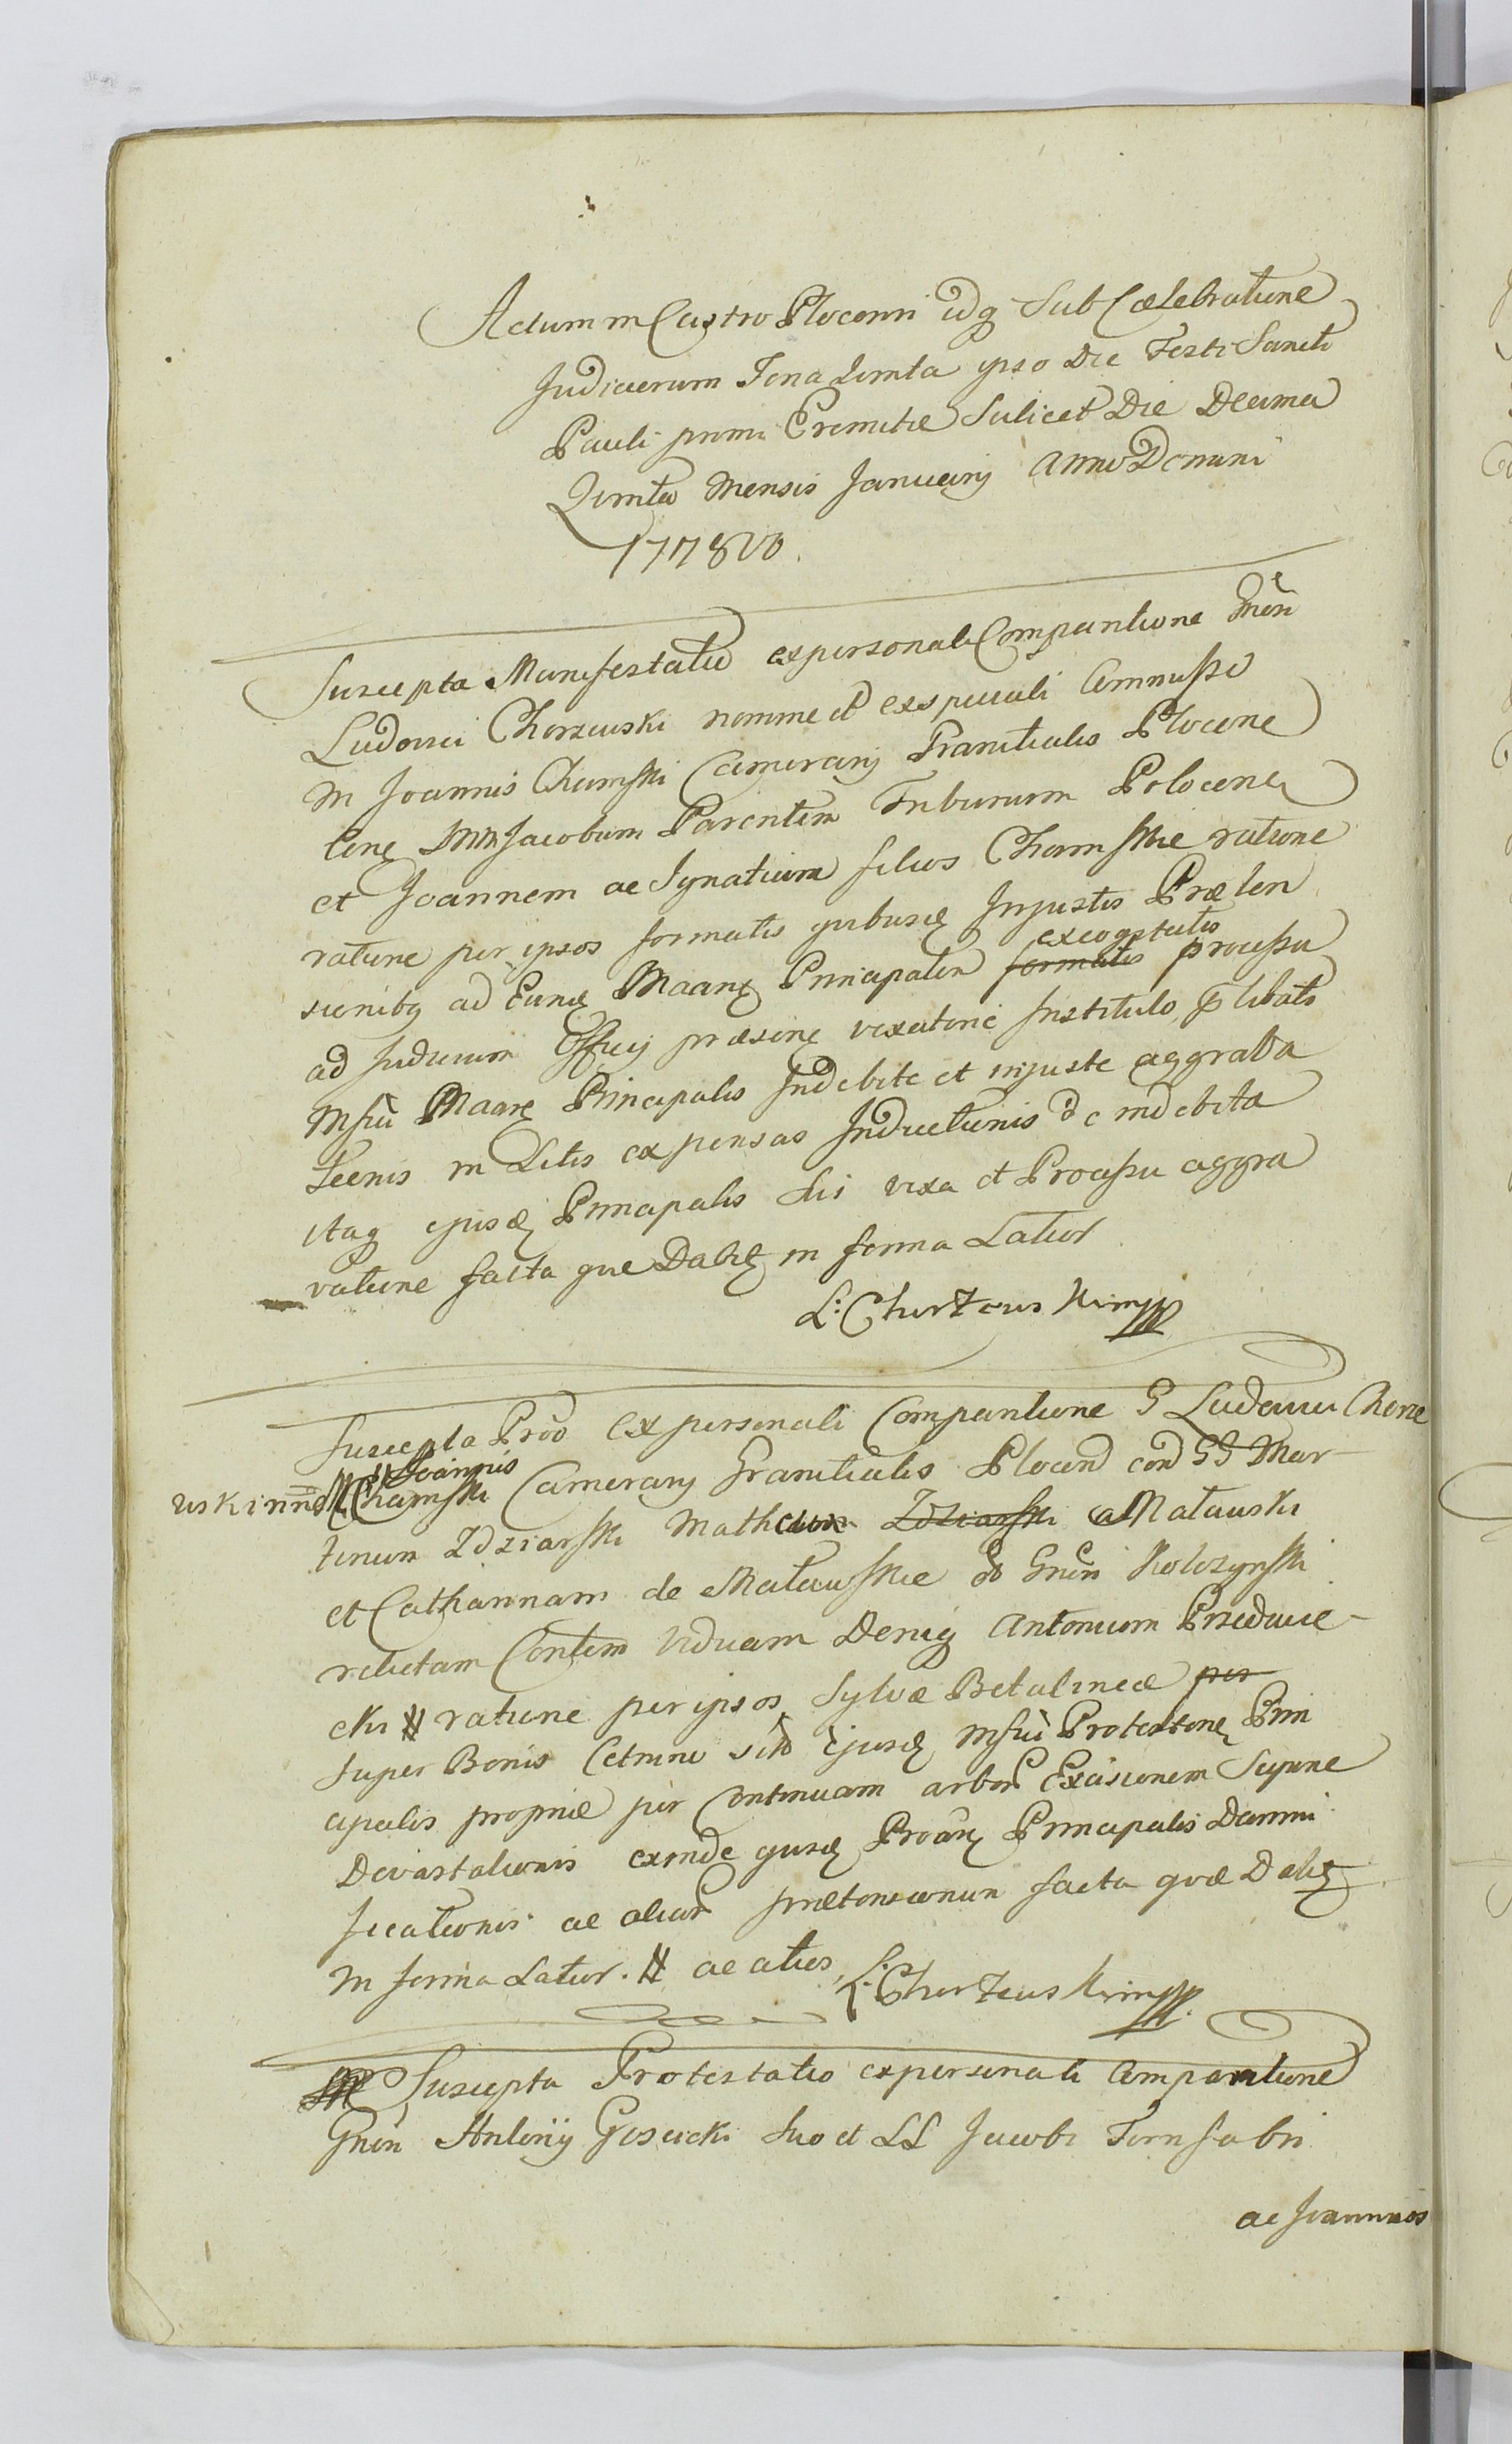 Actum in Castro Plocensi idq Sub Cælebratione
Judiciorum Feria Quinta ipso Die Festi Sancti
Pauli primi Eremitæ Scilicet Die Decima
Quinta Mensis Januarij Anno Domini
17178vo.
Suscepta Manifestatio ex personali Comparitione Gnsi
Ludovici Chorzewski nomine et ex speciali Commisso
M Joannis Chamski Camerarij Granitialis Plocens
cone MM Jacobum Parentem Tribunum Plocens
et Joannem ac Ignatium filios Chamskie ratione
ratione per ipsos formatis quibusd Injustis Præten
sionibq ad Eund Maanq Principalem formatis excogitatis processu
ad Judicium Officij præsens vexatorie Instituto, plibati
Msiu Maanq Principalis Indebite et injuste aggrava
tionis in Litis expensas Inductionis de indebita
itaq ejusd Principalis sui vexa et Processu aggra
vatione facta quæ Dabit in forma Latior
L: Chorzewski mpp
Suscepta Pro ex personali Comparitione G Ludovici Chorze
wski nne M Joannis Chamski Camerarij Granitialis Plocens con GG Mar
tinum Zdziarski Mathæum Zdziarski Matawski
et Catharinam de Matawskie Gnsi Kolczynski
relictam Contem Viduam Deniq Antonium Przedwie
cki # ratione per ipsos Sylvæ Betulineæ per
super Bonis Cetnino sitæ Ejusd Msiu Protestone Prin
cipalis propriæ per Continuam arbor Excisionem
Devastationis exinde ejusd Principalis Damni
ficationis ac alior prætensionum facta quæ Dabit
in forma Latior. # ac alios,
L: Chorzewski mpp
Suscepta Protestatio ex personali Comparitione
Gnsi Antonij Gosicki suo et LL Jacobi
ac Joannis